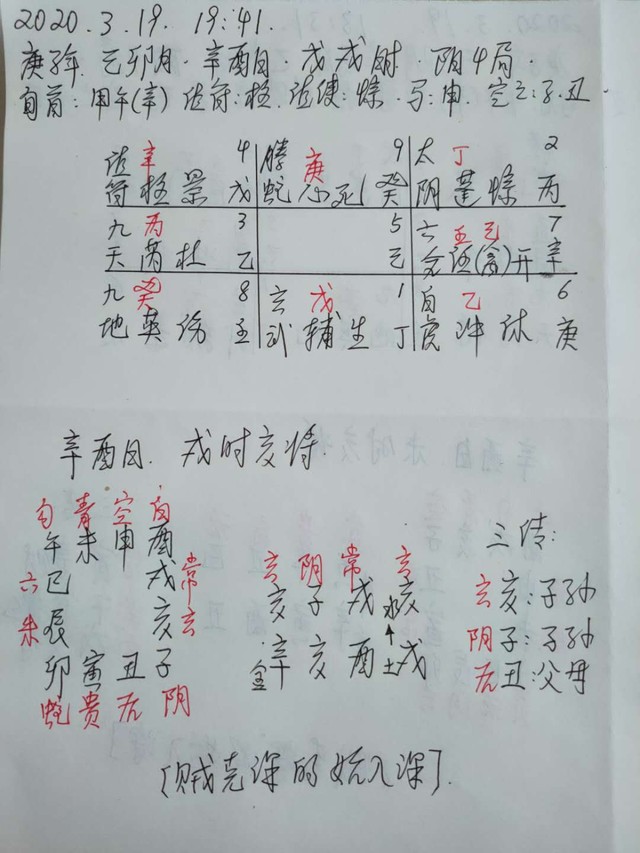 2020.3.19. 19:41.
庚子年. 己卯月. 辛酉日. 戊戌时. 阴4局.
旬首:甲午(辛) 值符:柱. 值使:惊. 马:申. 空亡:子.丑
值 辛 4 螣 庚 9 太 丁 2
符 柱 景 戊 蛇 心 死 癸 阴 蓬 惊 丙
九 丙 3 5 六 壬己 7
天 芮 杜 乙 己 合 任(禽)开 辛
九 癸 8 玄 戊 1 白 乙 6
地 英 伤 壬 武 辅 生 丁 虎 冲 休 庚
辛酉日. 戌时亥将.
勾 青 空 白
午 未 申 酉
六 巳 戌 常
朱 辰 亥 玄
卯 寅 丑 子
蛇 贵 后 阴
玄 阴 常 玄
亥 子 戌 水亥
金辛 亥 酉 土戌
三传:
玄亥:子孙
阴子:子孙
后丑:父母
[贼克深的始入深].